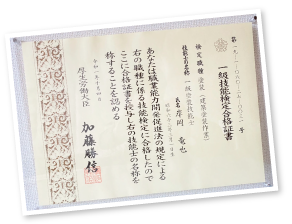 一級技能検定合格証書
検定職種 塗装(建築塗装作業)
技能士の名称 一級塗装技能士
氏名 竜也
あなたは職業能力開発促進法の規定による
右の職種に係る技能検定に合格したので
ここに合格証書を授与し右の技能士の名称を
称することを認める
厚生労働大臣
加藤勝信